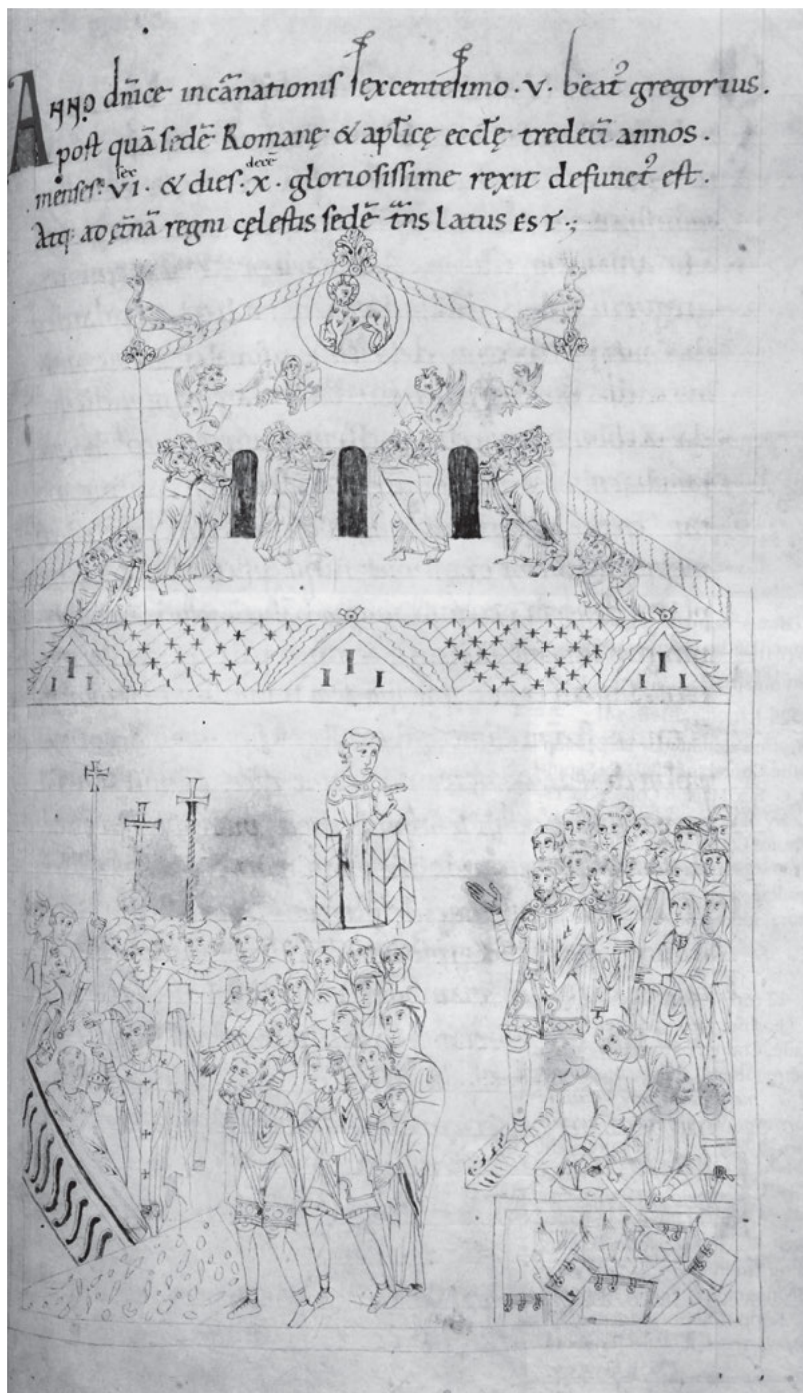 ANNO dn̄ice incānationis sexcentesimo · v · beatꝰ gregorius .
post quā sedē Romanę & apl̄icę eccl̄ę tredecī annos .
sex decē
menses · VI · & dies · X · gloriosissime rexit defunctꝰ est .
Atq: ad et̄nā regni cęlestis sedē tn̄s latus EST ·;